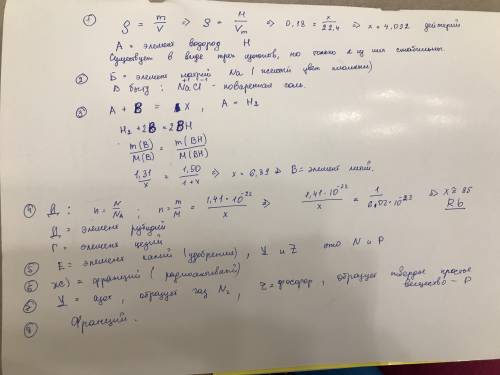 ① ρ = m/V ⇒ ρ = M/Vm ⇒ 0,18 = x/22,4 ⇒ x = 4,032 дейтерий
А = элемент водород H
Существует в виде трех изотопов, но только 2 из них стабильны.
② Б = элемент натрий Na (желтый цвет пламени)
В быту: Na⁺¹Cl⁻¹ - поваренная соль.
③ A + B = X, A = H₂
H₂ + 2B = 2BH
m(B)/M(B) = m(BH)/M(BH)
1,31/x = 1,50/1+x ⇒ x = 6,89 ⇒ B = элемент литий.
④ Д: n = N/Na; n = m/M = 1,41·10⁻²²/x ⇒ 1,41·10⁻²²/x = 1/6,02·10⁻²³ ⇒ x ≈ 85 Rb
Д = элемент рубидий
Г = элемент цезий
⑤ Е = элемент калий (удобрения), Y и Z это N и P
⑥ Ж) = франций (радиоактивный)
⑦ Y = азот, образует газ N₂, Z = фосфор, образует твердое простое вещество - P
⑧ Франций.